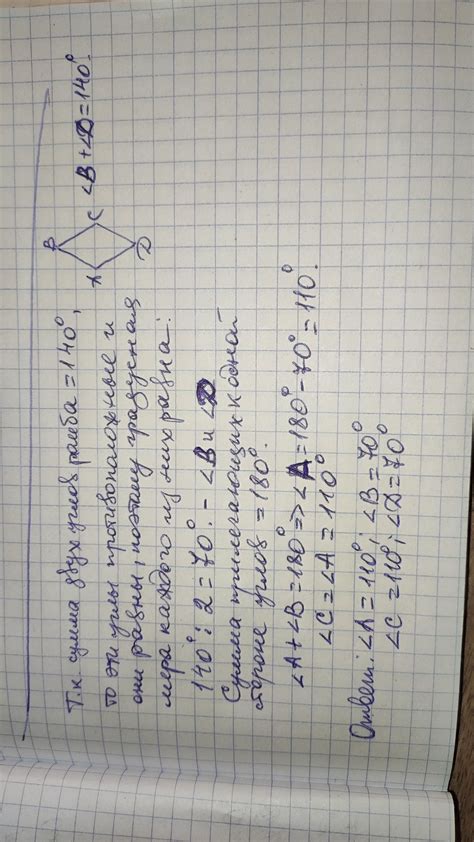 Т.к сумма двух углов ромба = 140°,
то эти углы противоположные и
они равны, поэтому градусная
мера каждого из них равна:
B
A
C
D
∠B+∠D=140°.
140° : 2 = 70° - ∠B и ∠D
Сумма прилегающих к одной
стороне углов = 180°.
∠A+∠B=180° => ∠A=180°-70°=110°.
∠C=∠A=110°
Ответ: ∠A=110°; ∠B=70°
∠C=110°; ∠D=70°